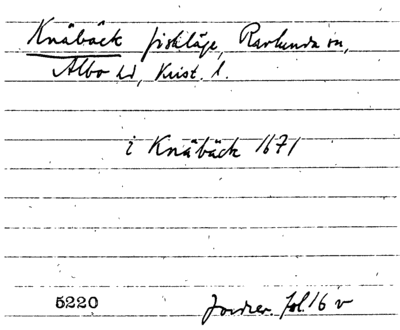 Knäbäck fiskläge, Ravlunda sn,
Albo hd, Krist. l.
i Knäbäck 1671
5220 Jordrev. fol. 16 v